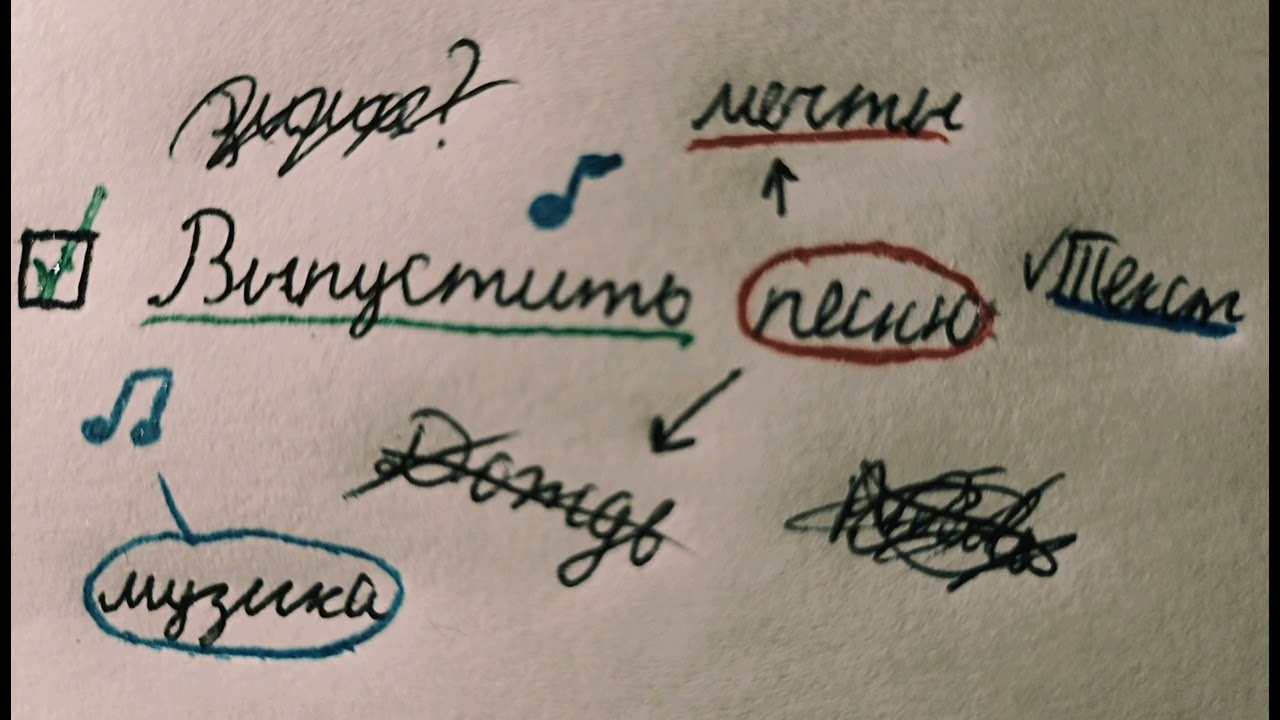 мечты
Выпустить песню
√Текст
Дождь
музыка